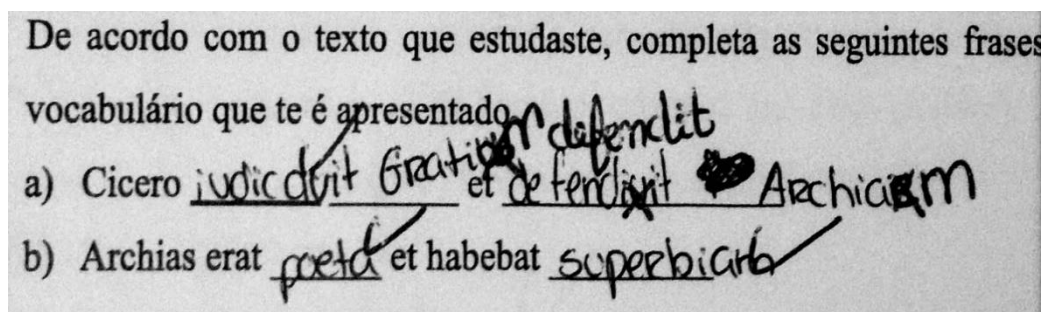 De acordo com o texto que estudaste, completa as seguintes frases
vocabulário que te é apresentado
defendit
a) Cicero iudicavit Gratium et defendivit Archiam
b) Archias erat poeta et habebat superbiam